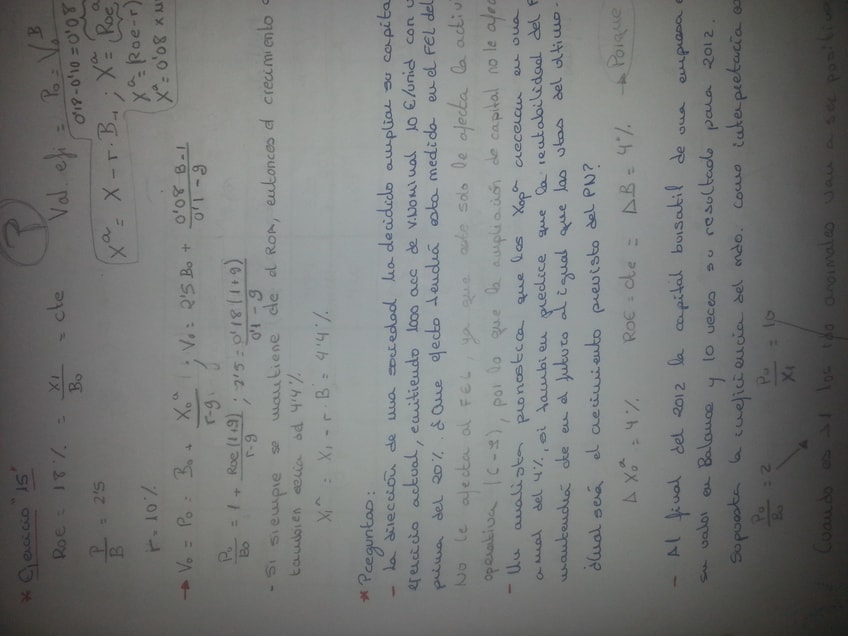 * Ejercicio "15"
?
ROE = 18% = X1/B0 = cte
Val. efi = P0 = V0
P/B = 2'5
0'18-0'10=0'08
X^a = X - r·B-1 ; X^a =
X^a = (ROE-r)
X^a = 0'08 x
r = 10%
→ V0 = P0 = B0 + X0^a/r-g ; V0 = 2'5 B0 + 0'08 B-1/0'1-g
P0/B0 = 1 + ROE(1+g)/r-g ; 2'5 = 0'18(1+g)/0'1-g
- Si siempre se mantiene cte el ROA, entonces el crecimiento
también sería del 4'4%
X1^a = X1 - r·B = 4'4%
* Preguntas:
- La dirección de una sociedad ha decidido ampliar su capital
ejercicio actual, emitiendo 1000 acc de V.Nominal 10 €/unid con
prima del 20%. ¿Que efecto tendrá esta medida en el FEL del
No le afecta al FEL, ya que esto solo le afecta la activ
operativa (C-I), por lo que la ampliación de capital no le afec
- Un analista pronostica que los Xop^a crecerán en una
anual del 4%, si también predice que la rentabilidad del
mantendrá cte en el futuro al igual que las vtas del último.
¿Cual será el crecimiento previsto del PN?
Δ X0^a = 4% ROE = cte = ΔB = 4% → Porque
- Al final del 2012 la capital bursatil de una empresa
su valor en Balance y 10 veces su resultado para 2012.
Supuesta la ineficiencia del mdo. como interpretaría
P0/B0 = 2 P0/X1 = 10
Cuando es >1 los rdo anormales van a ser positivo